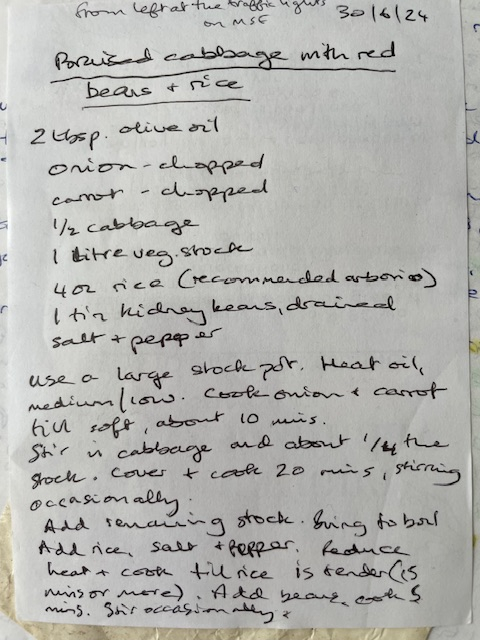 from left at the traffic lights
on MSE
30/6/24
Braised cabbage with red
beans + rice
2 tbsp. olive oil
onion - chopped
carrot - chopped
1/2 cabbage
1 litre veg. stock
4 oz rice (recommended arborio)
1 tin kidney beans, drained
salt + pepper
Use a large stock pot. Heat oil,
medium/low. Cook onion + carrot
till soft, about 10 mins.
Stir in cabbage and about 1/4 the
stock. Cover + cook 20 mins, stirring
occasionally.
Add remaining stock. Bring to boil
Add rice, salt + pepper. Reduce
heat + cook till rice is tender (15
mins or more). Add beans, cook 5
mins. Stir occasionally